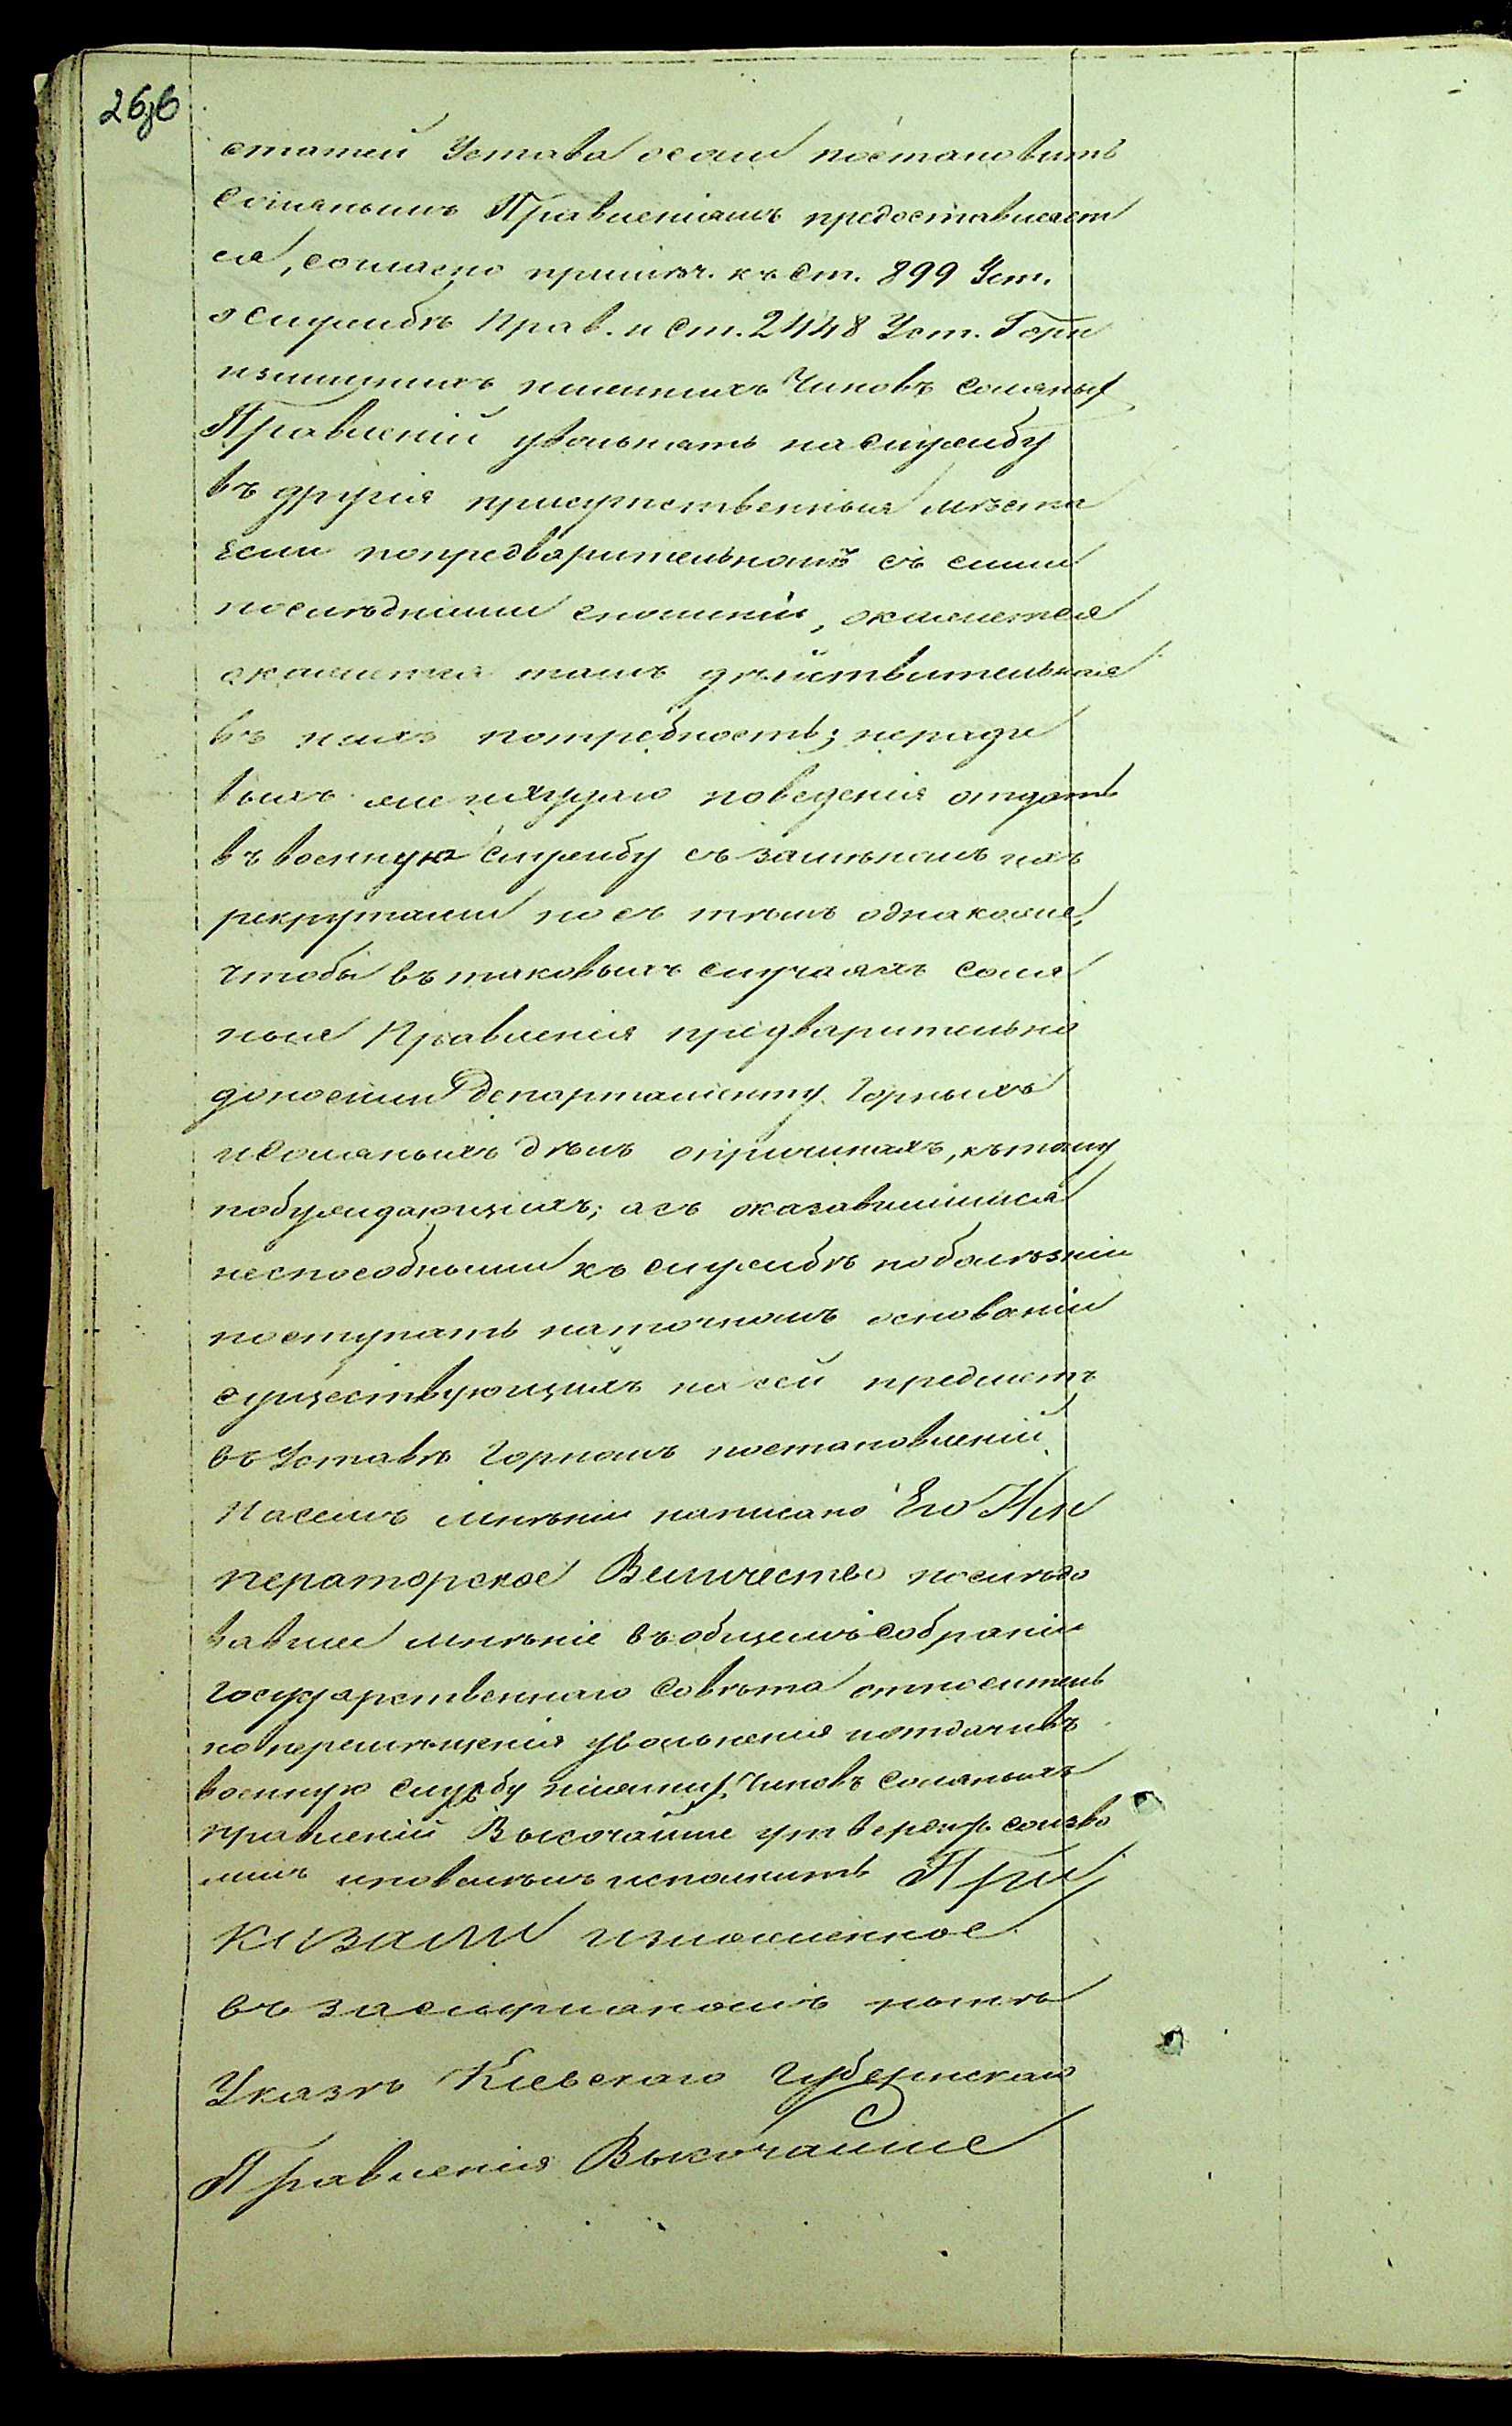 26зв
статей Устава осоли постановить
Солянымъ Правленіямъ предоставляет
ся, согласно примѣч. къ ст. 899 Уст.
о Службѣ Прав. и ст. 2448 Уст. Горн
излишнихъ нижнихъ Чиновъ Соляных
Правленій увольнять на службу
въ другія присутственныя мѣста
если попредварительномъ съ сими
послѣдними сношеніи, окажется
окажется тамъ дѣйствительная
въ нихъ потребность; неради
выхъ же ихудаго поведенія отдать
въ военную службу съ замѣномъ ихъ
рекрутами но съ тѣмъ однакоже,
чтобы въ таковыхъ случаяхъ Соля
ныя Правленія предварительно
доносили Департаменту Горныхъ
иСоляныхъ дѣлъ опричинахъ, къ тому
побуждающихъ; асъ оказавшимися
неспособными къ службѣ поболѣзни
поступать наточномъ основаніи
существующихъ на сей предметъ
въ Уставѣ Горномъ постановленій
Насемъ мнѣніи написано Его Им
ператорское Величество послѣдо
вавшее мнѣніе въ общемъ собраніи
Государственнаго Совѣта относитель
но перемѣщенія увольненія иотдачивъ
военную службу нижних Чиновъ Соляныхъ
правленій Высочайше утвердить соизво
лилъ иповелѣлъ исполнить При
казали изложенное
въ заслушаномъ
Указѣ Кіевскаго Губернскаго
Правленія Высочайше